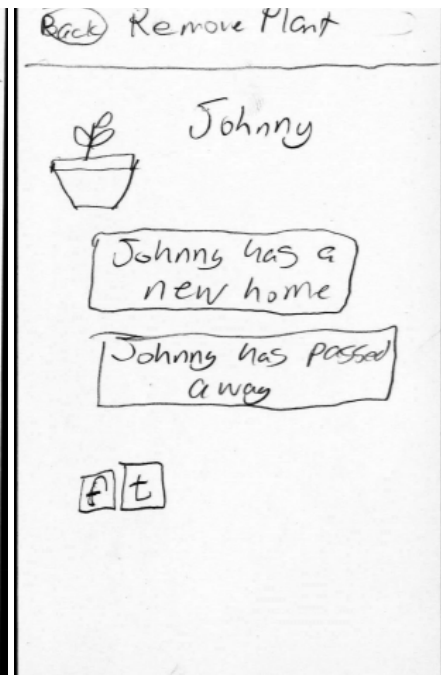 Back Remove Plant
Johnny
Johnny has a
new home
Johnny has passed
away
f t